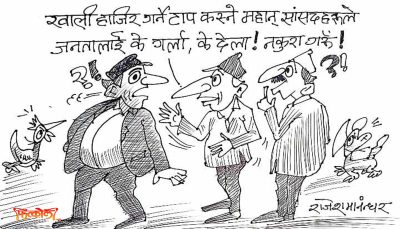 खाली हाजिर गर्ने टाप कस्ने महान् सांसदहरूले
जनतालाई के गर्ला, के देला! नकुरा गरूँ!
?!
??
राजेश मानन्धर